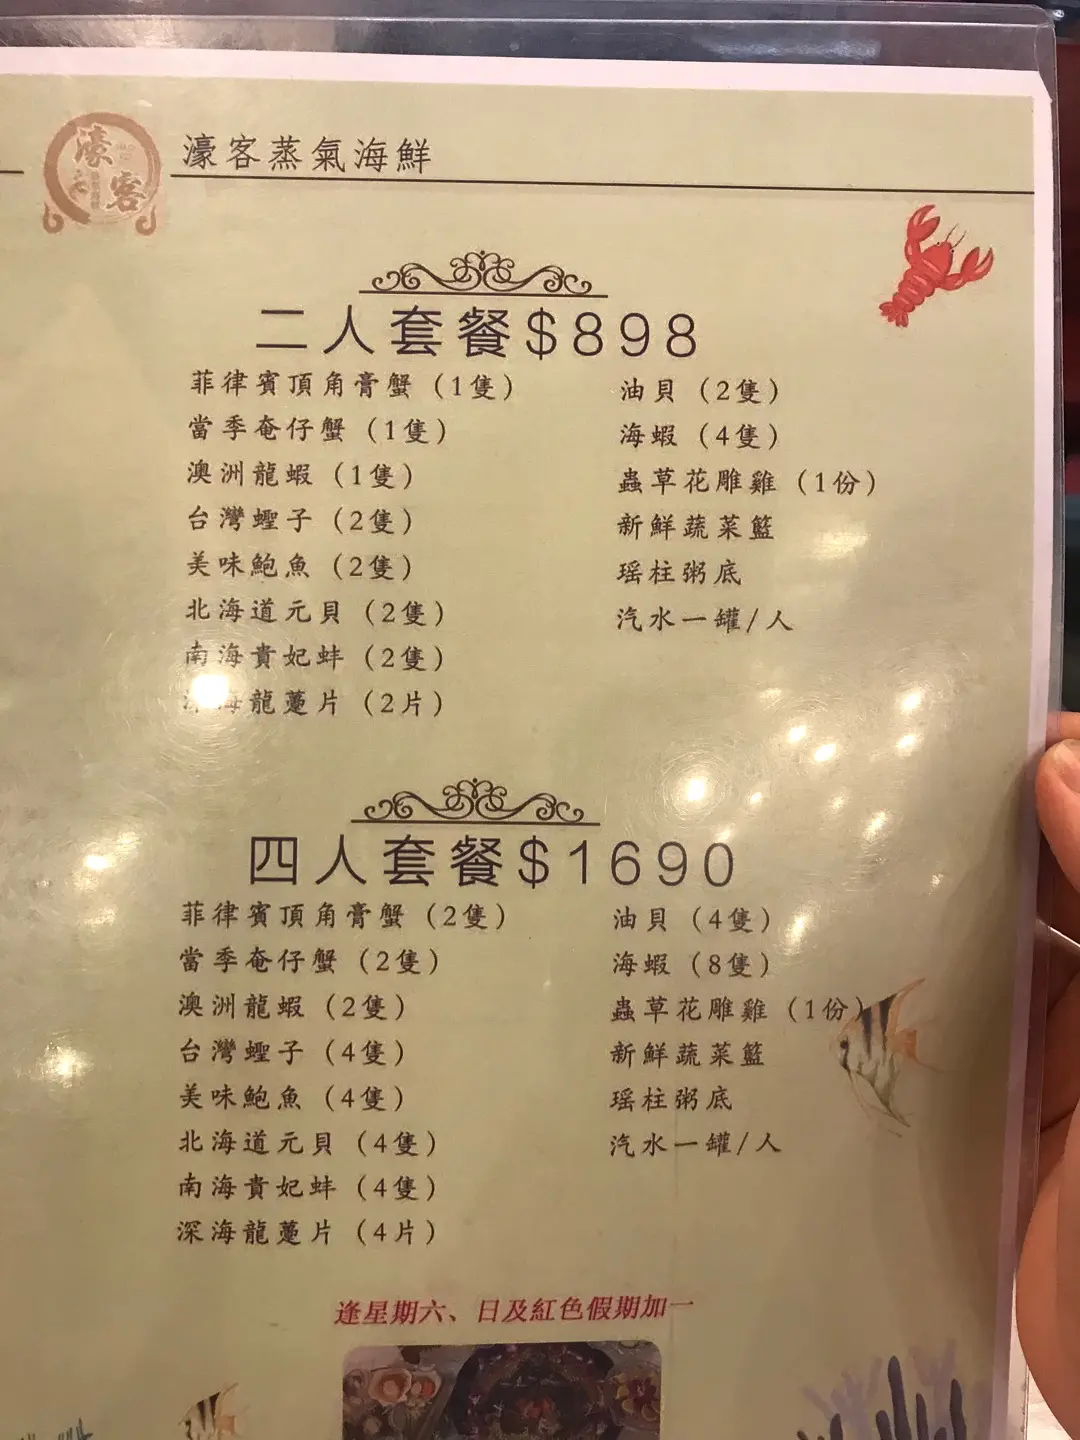 濠客
濠客蒸氣海鮮
二人套餐$898
菲律賓頂角膏蟹（1隻）
當季奄仔蟹（1隻）
澳洲龍蝦（1隻）
台灣蟶子（2隻）
美味鮑魚（2隻）
北海道元貝（2隻）
南海貴妃蚌（2隻）
海龍躉片（2片）
油貝（2隻）
海蝦（4隻）
蟲草花雕雞（1份）
新鮮蔬菜籃
瑶柱粥底
汽水一罐/人
四人套餐$1690
菲律賓頂角膏蟹（2隻）
當季奄仔蟹（2隻）
澳洲龍蝦（2隻）
台灣蟶子（4隻）
美味鮑魚（4隻）
北海道元貝（4隻）
南海貴妃蚌（4隻）
深海龍躉片（4片）
油貝（4隻）
海蝦（8隻）
蟲草花雕雞（1份）
新鮮蔬菜籃
瑶柱粥底
汽水一罐/人
逢星期六、日及紅色假期加一